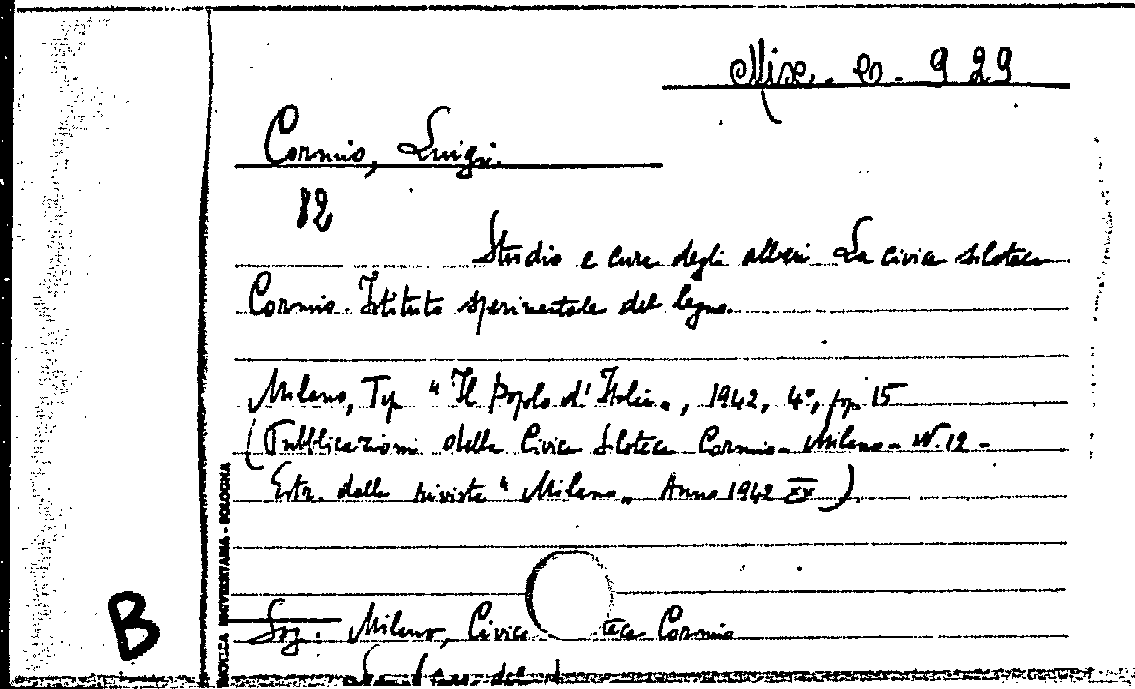 Misc. B. 929
Cormio, Luigi.
82
Studio e cura degli alberi La civica siloteca
Cormio. Istituto sperimentale del legno.
Milano, Tip "Il Popolo d'Italia„, 1942, 4°, pp 15
(Pubblicazioni della Civica Siloteca Cormio - Milano - N. 12 -
Estr. dalla rivista "Milano„ Anno 1942 XX).
Sog: Milano, Civica teca Cormio
B
UNIVERSITARIA - BOLOGNA